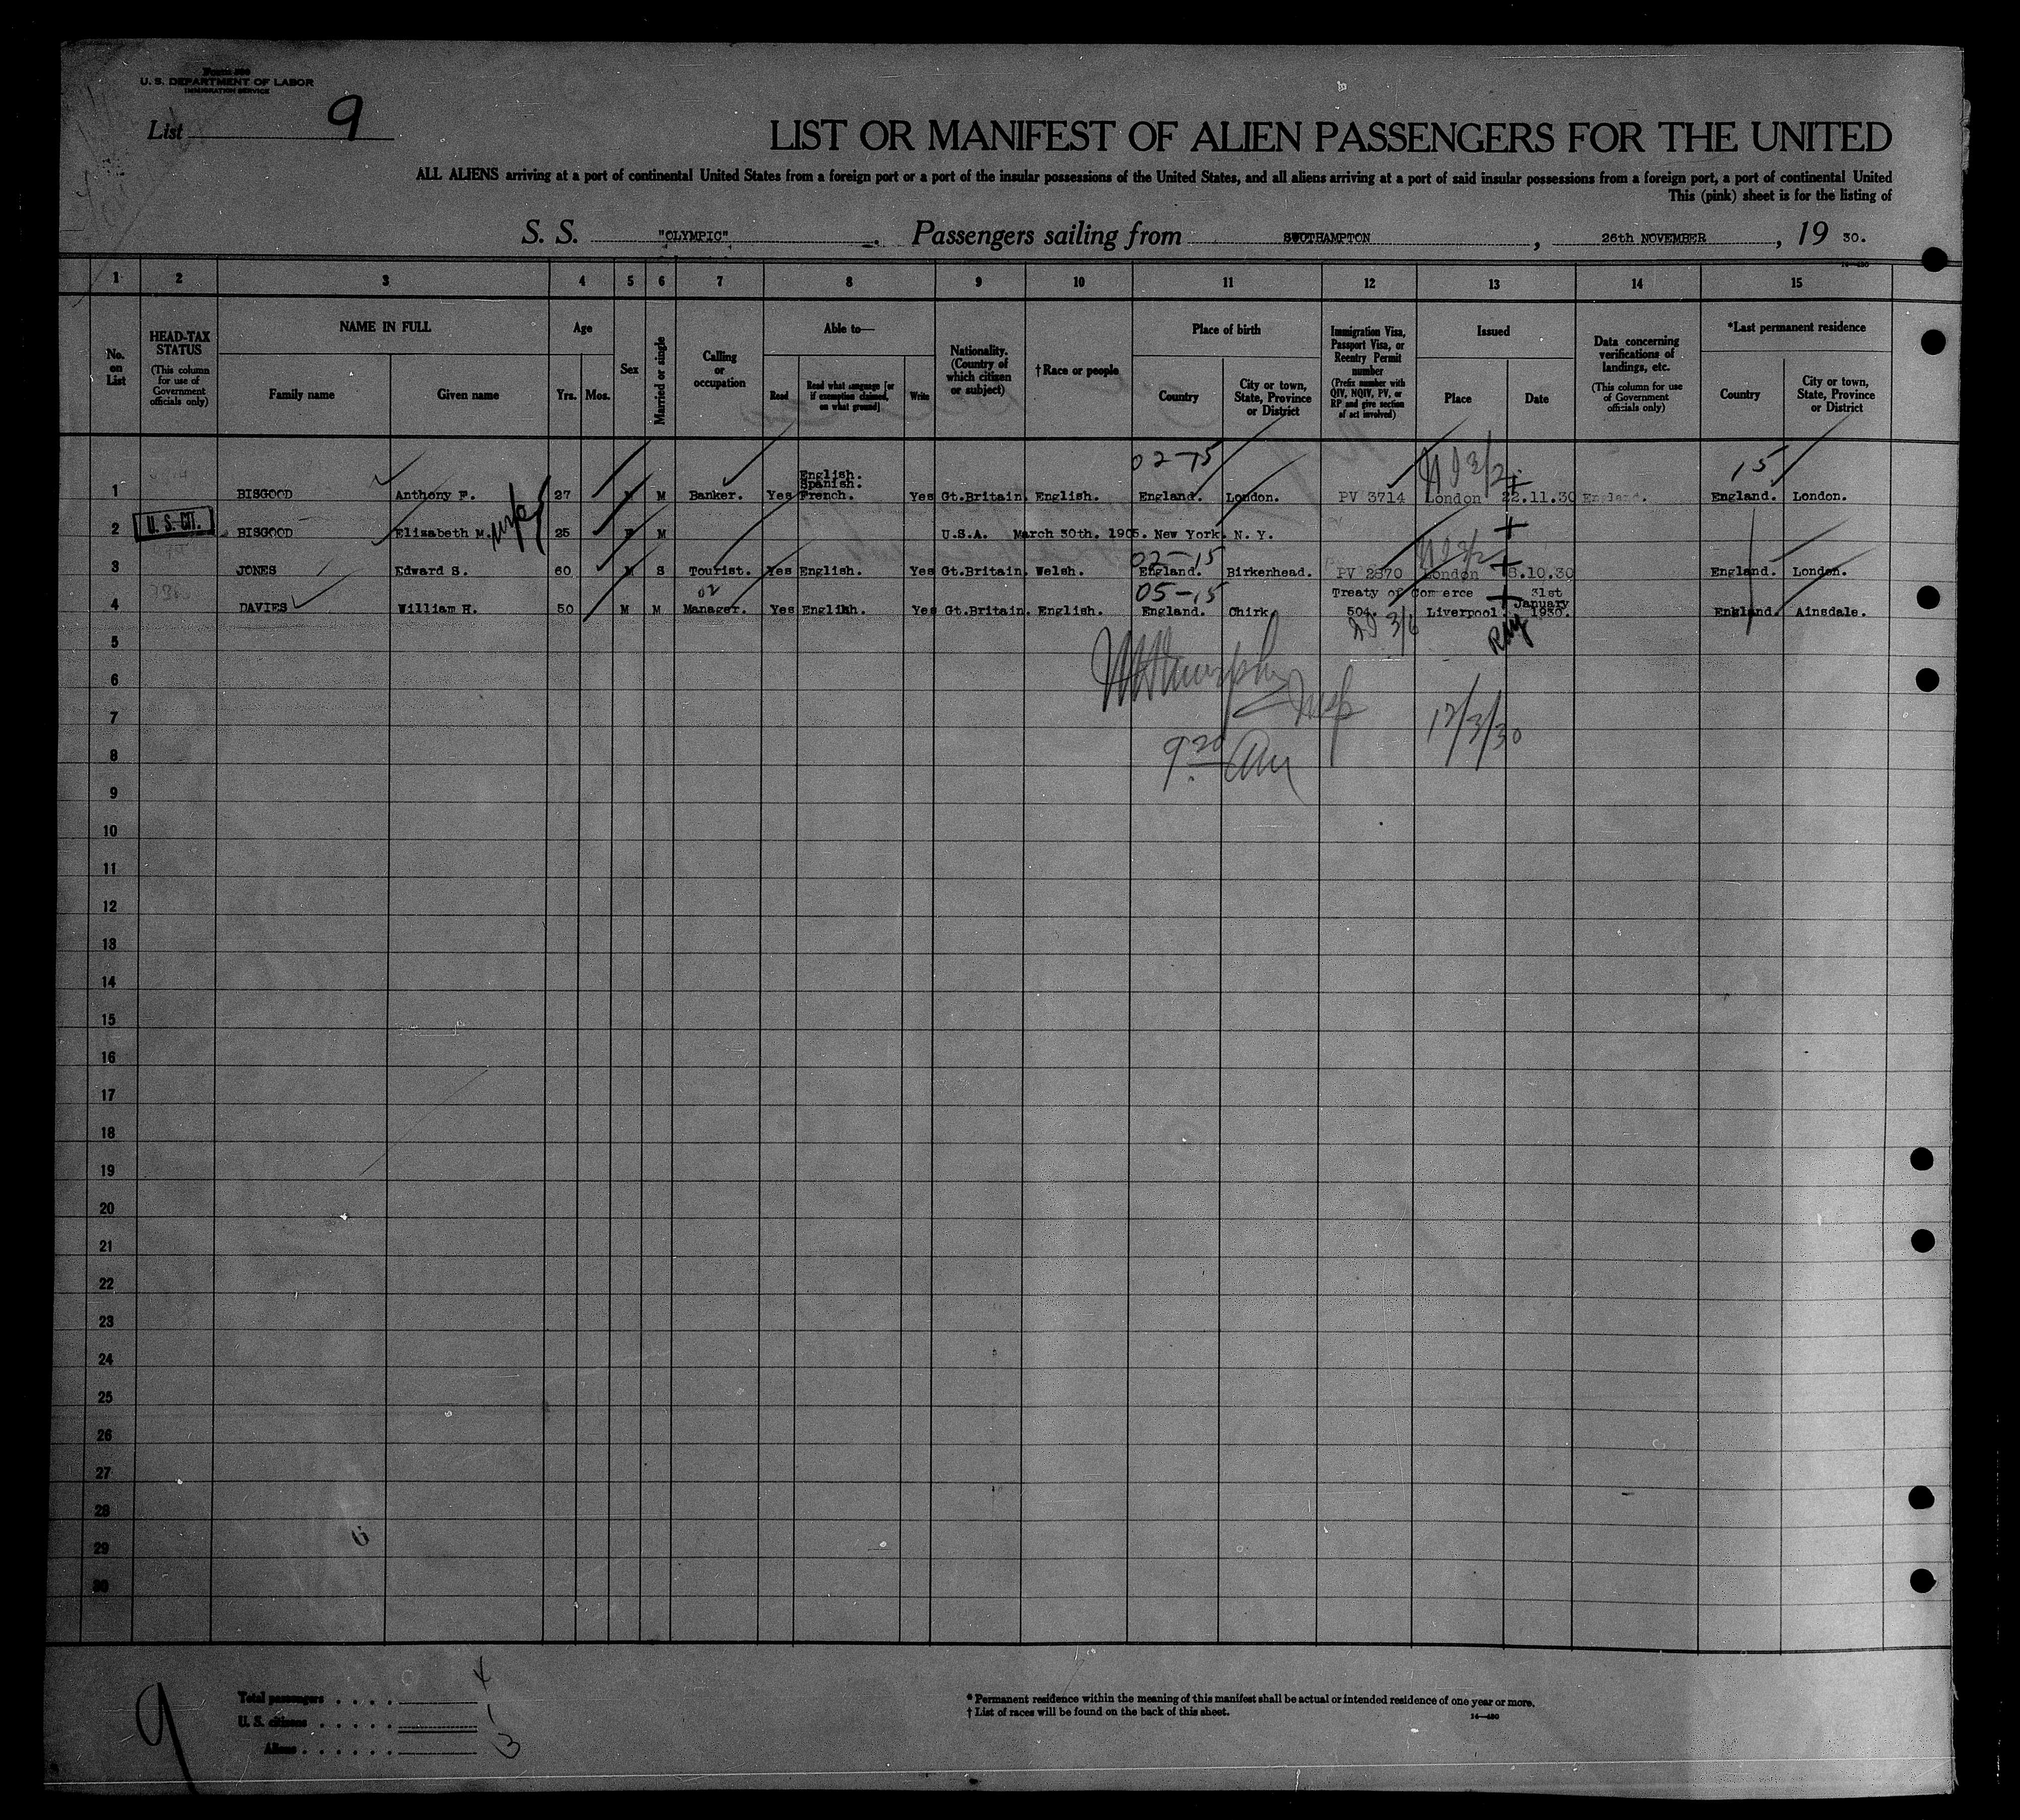 Form 500
U. S. DEPARTMENT OF LABOR
IMMIGRATION SERVICE
List 9
LIST OR MANIFEST OF ALIEN PASSENGERS FOR THE UNITED
ALL ALIENS arriving at a port of continental United States from a foreign port or a port of the insular possessions of the United States, and all aliens arriving at a port of said insular possessions from a foreign port, a port of continental United
This (pink) sheet is for the listing of
S. S. "OLYMPIC" . Passengers sailing from SOUTHAMPTON , 26th NOVEMBER , 19 30.
1 2 3 4 5 6 7 8 9 10 11 12 13 14 15
No. on List
HEAD-TAX STATUS (This column for use of Government officials only)
NAME IN FULL
Family name
Given name
Age
Yrs. Mos.
Sex
Married or single
Calling or occupation
Able to—
Read
Read what language [or if exemption claimed, on what ground]
Write
Nationality. (Country of which citizen or subject)
† Race or people
Place of birth
Country
City or town, State, Province or District
Immigration Visa, Passport Visa, or Reentry Permit number (Prefix number with QIV, NQIV, PV, or RP and give section of act involved)
Issued
Place
Date
Data concerning verifications of landings, etc. (This column for use of Government officials only)
*Last permanent residence
Country
City or town, State, Province or District
02-15 15
English.
Spanish.
1 BISGOOD Anthony F. 27 M M Banker. Yes French. Yes Gt.Britain. English. England. London. PV 3714 London 22.11.30 England. England. London.
U. S. CIT.
2 BISGOOD Elizabeth M. 25 F M U.S.A. March 30th. 1905. New York. N. Y.
02-15
3 JONES Edward S. 60 M S Tourist. Yes English. Yes Gt.Britain. Welsh. England. Birkenhead. PV 2870 London 8.10.30 England. London.
02 05-15 Treaty of Comerce 31st January
4 DAVIES William H. 50 M M Manager. Yes English. Yes Gt.Britain. English. England. Chirk. 504. Liverpool. 1930. England. Ainsdale.
5
6
7
12/3/30
9 20 am
8
9
10
11
12
13
14
15
16
17
18
19
20
21
22
23
24
25
26
27
28
29
30
9
Total passengers . . . . 4
U. S. citizens . . . . . 1
Aliens . . . . . . 3
* Permanent residence within the meaning of this manifest shall be actual or intended residence of one year or more.
† List of races will be found on the back of this sheet.
14—480